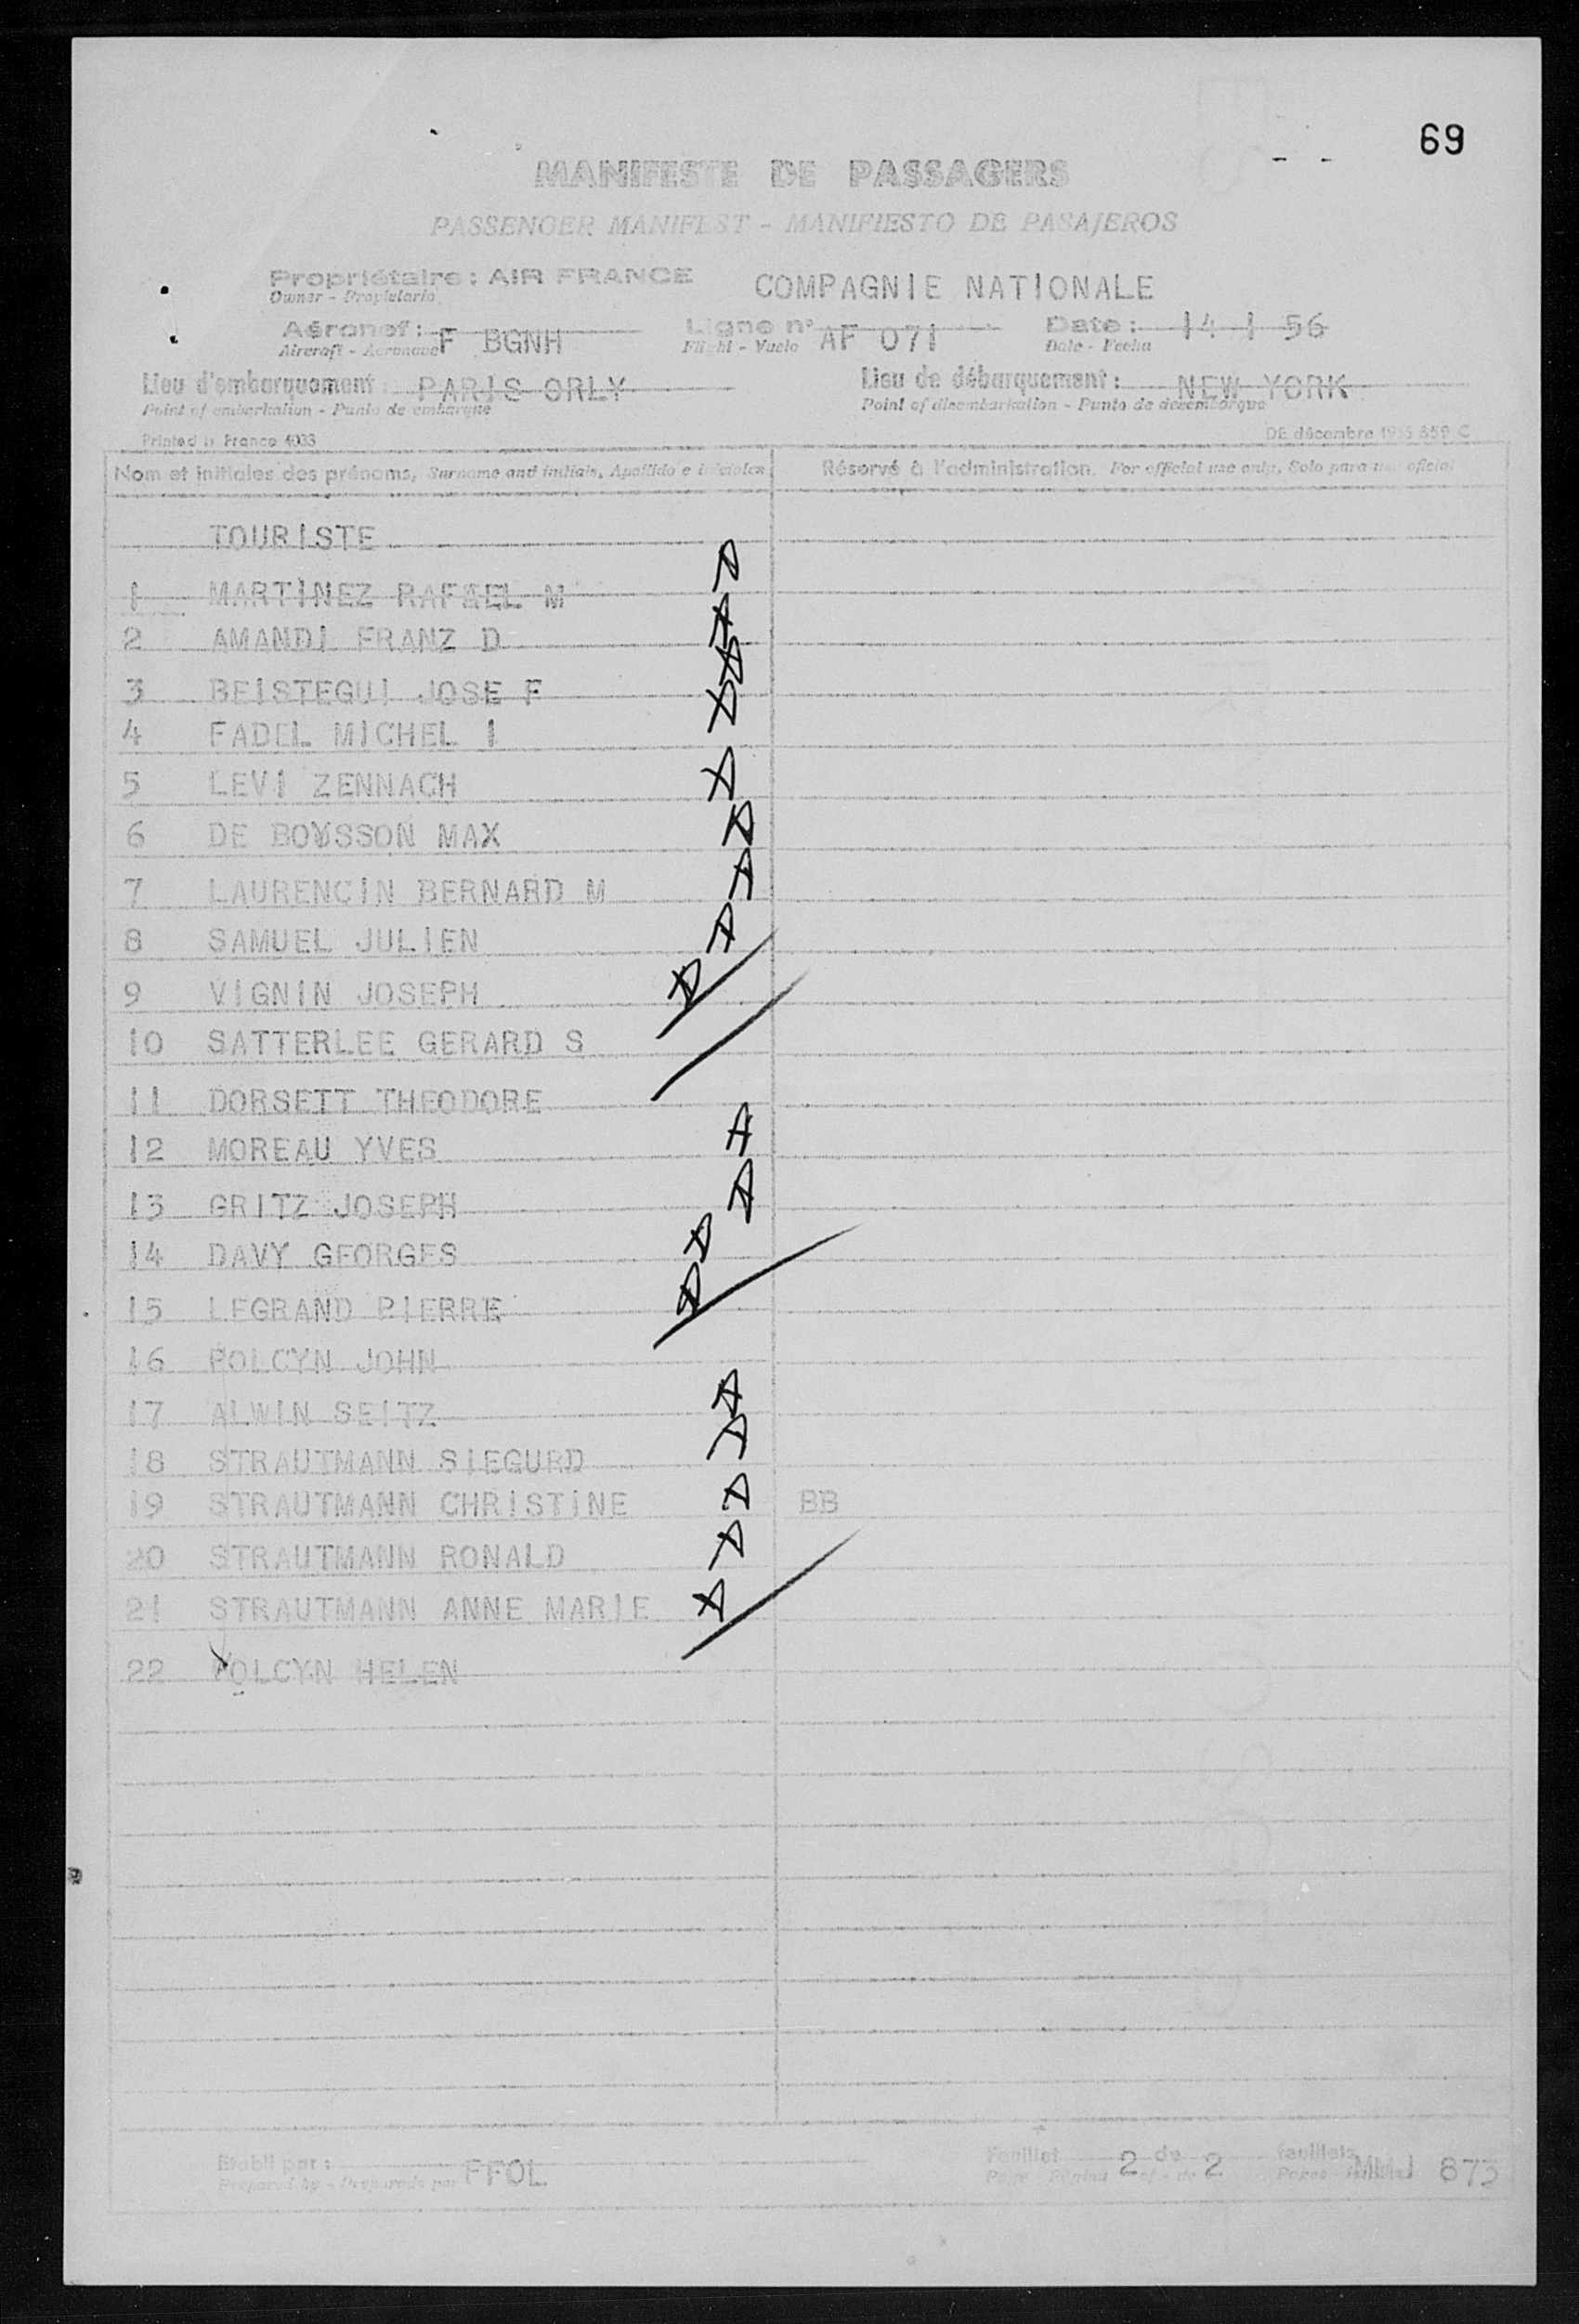 69
MANIFESTE DE PASSAGERS
PASSENGER MANIFEST - MANIFIESTO DE PASAJEROS
Propriétaire : AIR FRANCE COMPAGNIE NATIONALE
Owner - Propietario
Aéronef : F BGNH Ligne n° AF 071 Date : 14 1 56
Aircraft - Aeronave Flight - Vuelo Date - Fecha
Lieu d'embarquement : PARIS ORLY Lieu de débarquement : NEW YORK
Point of embarkation - Punto de embarque Point of disembarkation - Punto de desembarque
Printed in France 4033 DE décembre 1955 859 C
Nom et initiales des prénoms, Surname and initials, Apellido e iniciales Réservé à l'administration. For official use only, Solo para uso oficial
TOURISTE
1 MARTINEZ RAFAEL M
2 AMANDI FRANZ D
3 BEISTEGUI JOSE F
4 FADEL MICHEL I
5 LEVI ZENNACH
6 DE BOYSSON MAX
7 LAURENCIN BERNARD M
8 SAMUEL JULIEN
9 VIGNIN JOSEPH
10 SATTERLEE GERARD S
11 DORSETT THEODORE
12 MOREAU YVES
13 GRITZ JOSEPH
14 DAVY GEORGES
15 LEGRAND PIERRE
16 POLCYN JOHN
17 ALWIN SEITZ
18 STRAUTMANN SIEGURD
19 STRAUTMANN CHRISTINE BB
20 STRAUTMANN RONALD
21 STRAUTMANN ANNE MARIE
22 POLCYN HELEN
Etabli par : FFOL Feuillet 2 de 2 feuillets
Prepared by - Preparado por